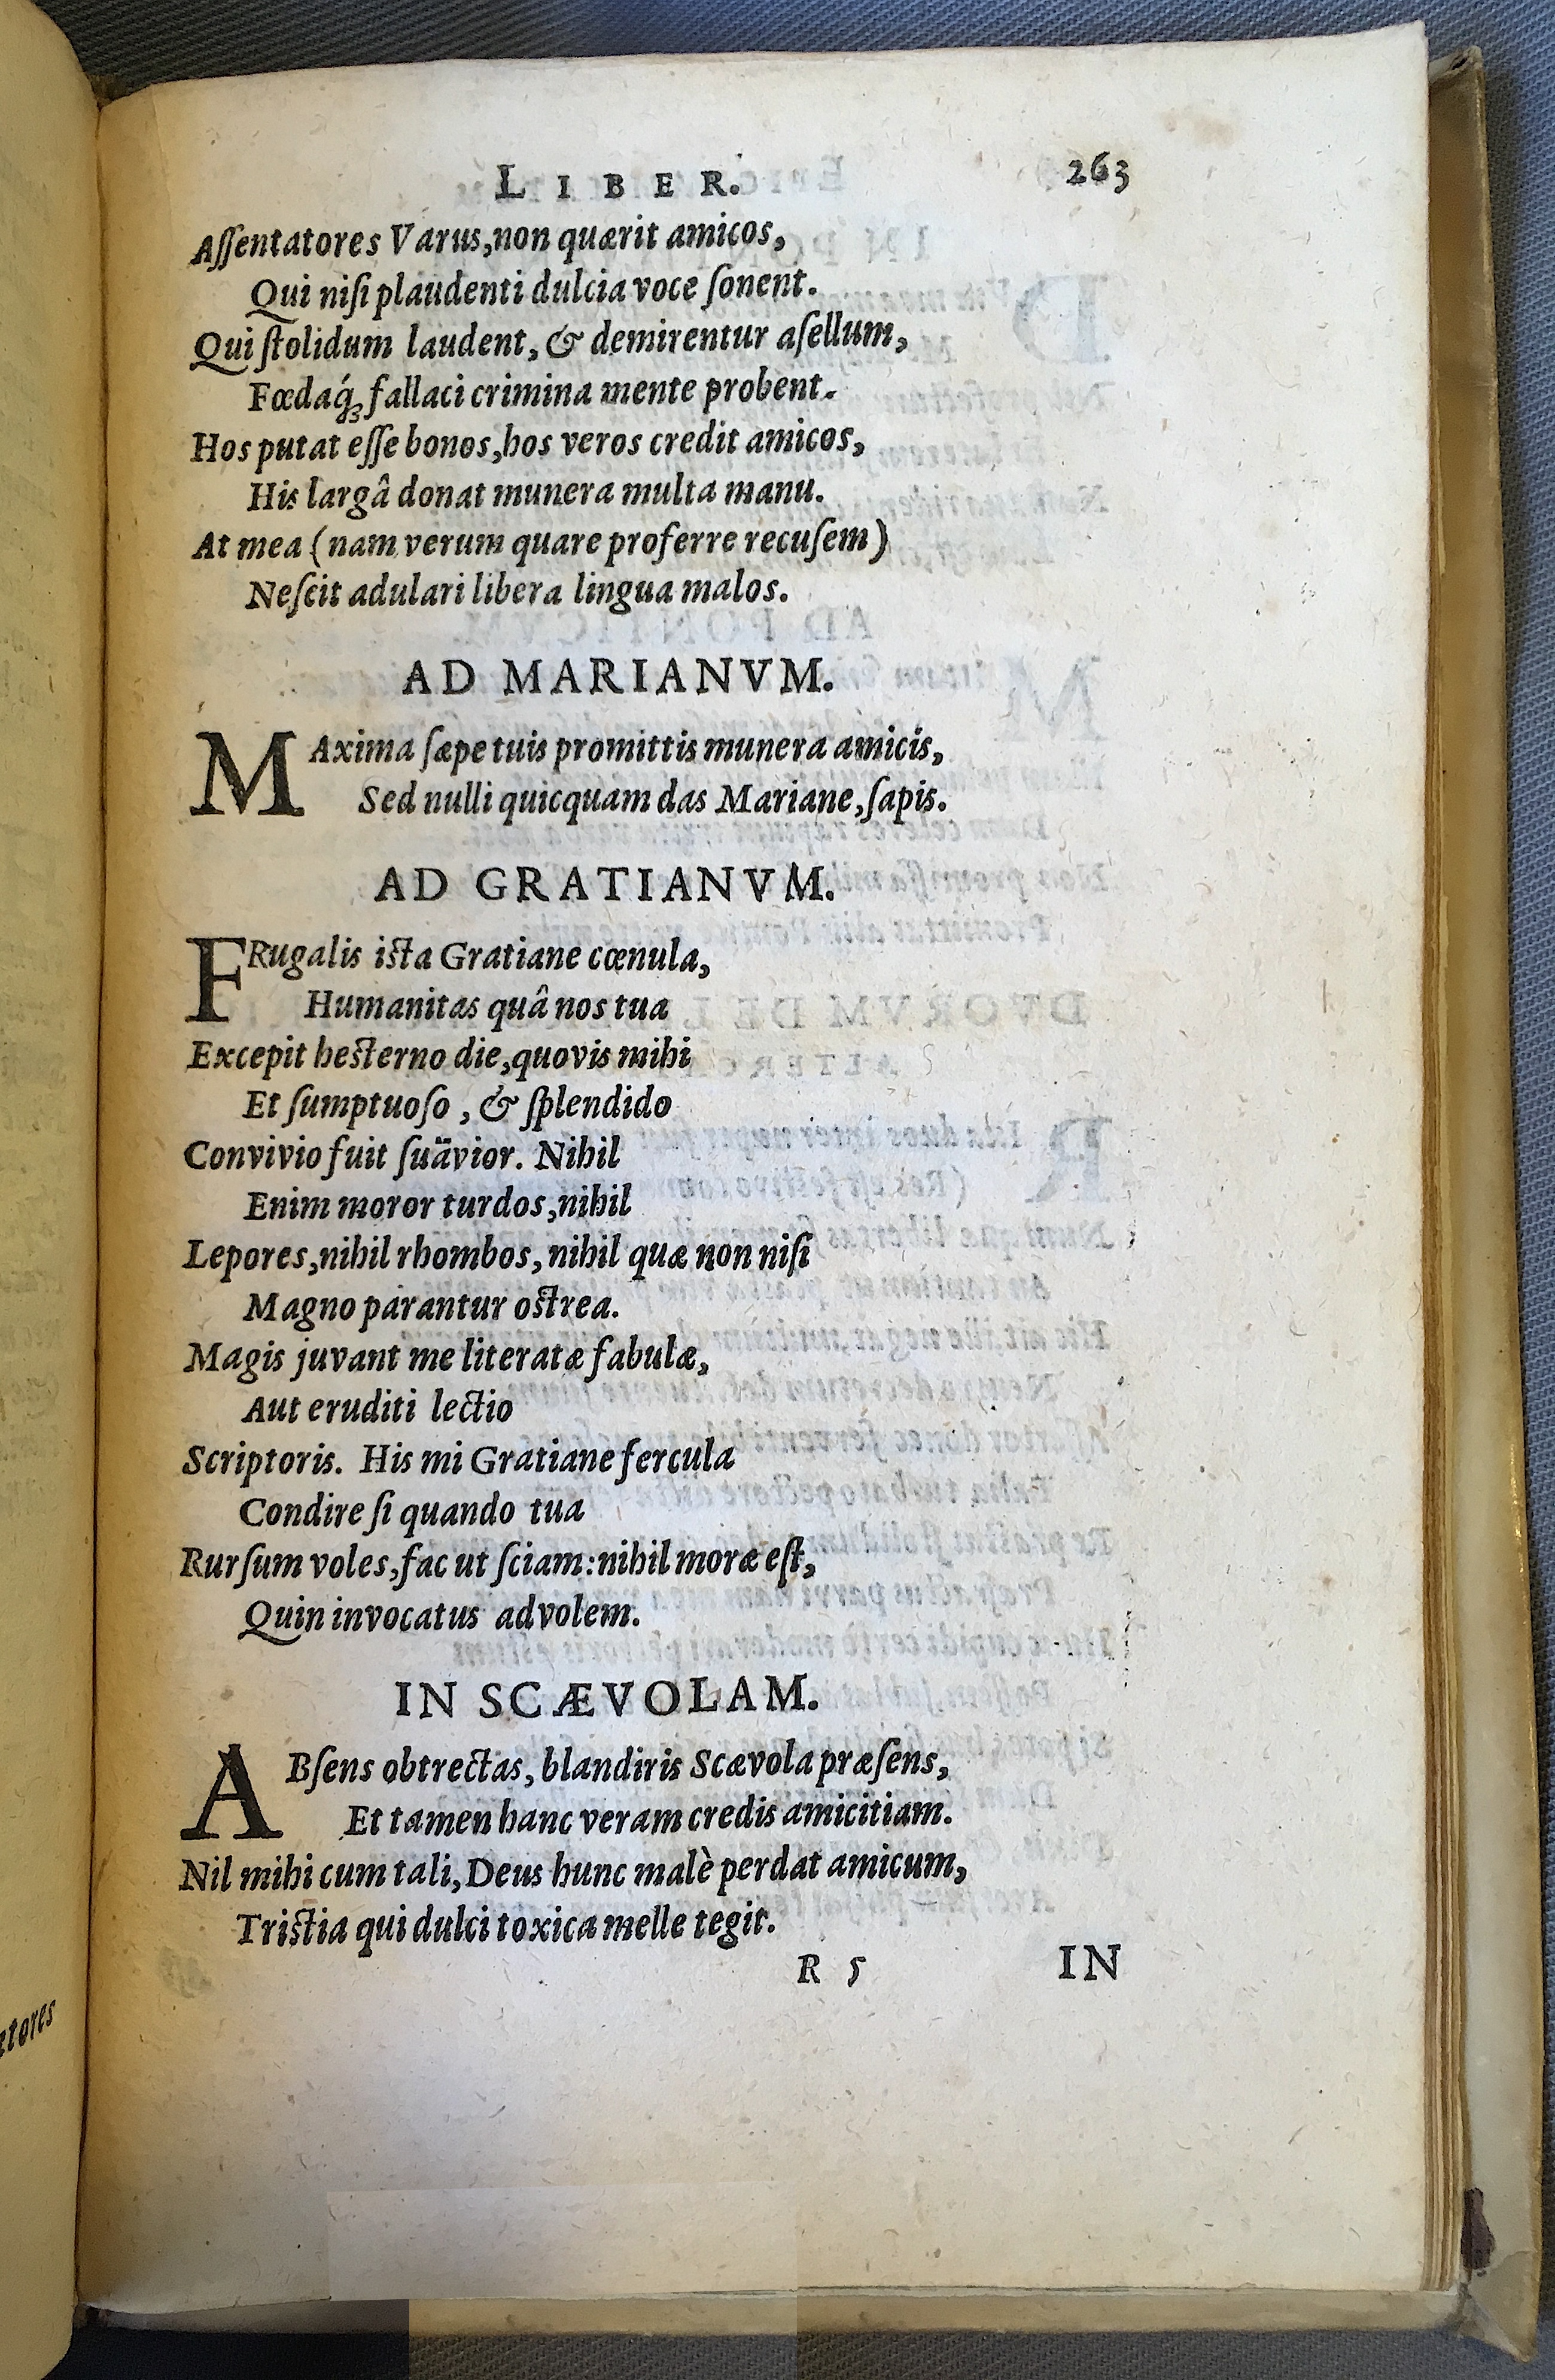 LIBER. 263
Aſſentatores Varus,non quærit amicos,
Qui niſi plaudenti dulcia voce ſonent.
Qui ſtolidum laudent, & demirentur aſellum,
Fœdaq́ꝫ fallaci crimina mente probent.
Hos putat eſſe bonos,hos veros credit amicos,
His largâ donat munera multa manu.
At mea (nam verum quare proferre recuſem)
Neſcit adulari libera lingua malos.
AD MARIANVM.
MAxima ſæpe tuis promittis munera amicis,
Sed nulli quicquam das Mariane,ſapis.
AD GRATIANVM.
FRugalis iſta Gratiane cœnula,
Humanitas quâ nos tua
Excepit heſterno die,quovis mihi
Et ſumptuoſo , & ſplendido
Convivio fuit ſuävior. Nihil
Enim moror turdos,nihil
Lepores,nihil rhombos, nihil quæ non niſi
Magno parantur oſtrea.
Magis juvant me literatæ fabulæ,
Aut eruditi lectio
Scriptoris. His mi Gratiane fercula
Condire ſi quando tua
Rurſum voles,fac ut ſciam:nihil moræ eſt,
Quin invocatus advolem.
IN SCÆVOLAM.
ABſens obtrectas, blandiris Scævola præſens,
Et tamen hanc veram credis amicitiam.
Nil mihi cum tali, Deus hunc malè perdat amicum,
Triſtia qui dulci toxica melle tegit.
R 5 IN